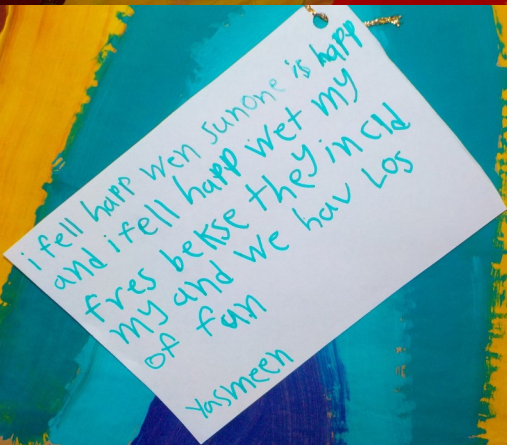 i fell happ wen sunone is happ
and i fell happ wet my
fres bekse they in cld
my and we hav Los
of fun
Yasmeen